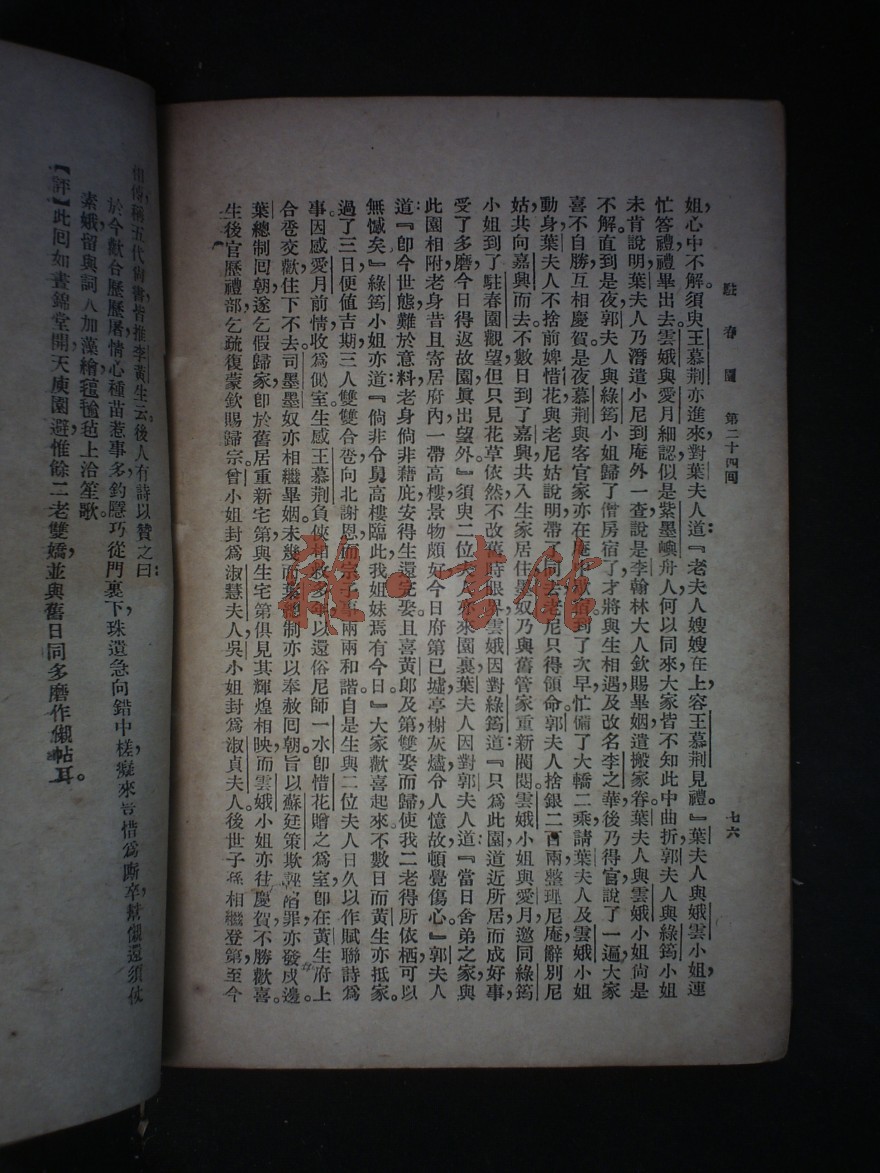 駐春園 第二十四囘 七六
姐，心中不解。須臾王慕荆亦進來，對葉夫人道：『老夫人嫂嫂在上，容王慕荆見禮。』葉夫人與娥雲小姐，連
忙答禮，禮畢出去。雲娥與愛月細認，似是紫墨巉舟人，何以同來，大家皆不知此中曲折，郭夫人與綠筠小姐
未肯說明，葉夫人乃潛遣小尼到庵外一查，說是李翰林大人欽賜畢姻，遣搬家眷。葉夫人與雲娥小姐，尙是
不解。直到是夜，郭夫人與綠筠小姐歸了僧房宿了，才將與生相遇，及改名李之華，後乃得官，說了一遍，大家
喜不自勝，互相慶賀。是夜慕荆與客官家亦在庵外歇宿，到了次早，忙備了大轎二乘，請葉夫人及雲娥小姐
動身，葉夫人不捨前婢惜花，與老尼姑說明，帶了同去，老尼只得領命。郭夫人捨銀二百兩，整理尼庵，辭別尼
姑，共向嘉興而去。不數日到了嘉興，共入生家居住，墨奴乃與舊管家重新閱閱。雲娥小姐與愛月邀同綠筠
小姐到了駐春園觀望，但只見花草依然，不改舊時眼界，雲娥因對綠筠道：『只爲此園道近所居，而成好事，
受了多磨，今日得返故園，眞出望外。』須臾二位夫人亦來園裏，葉夫人因對郭夫人道：『當日舍弟之家，與
此園相附，老身昔且寄居府內，一帶高樓，景物頗好，今日府第已墟，亭榭灰燼，令人憶故，頓覺傷心。』郭夫人
道：『卽今世態，難於意料，老身倘非藉庇，安得生還完娶，且喜黃郎及第，雙娶而歸，使我二老得所依栖，可以
無憾矣。』綠筠小姐亦道：『倘非令舅高樓臨此，我姐妹焉有今日。』大家歡喜起來。不數日而黃生亦抵家，
過了三日，便値吉期，三人雙雙合卺，向北謝恩，而宗子事兩兩和諧，自是生與二位夫人日久以作賦聯詩爲
事。因感愛月前情，收爲側室。生感王慕荆負俠相救多年，以還俗尼師一水卽惜花贈之爲室，卽在黃生府上
合卺交歡，住下不去。司墨墨奴亦相繼畢姻。未幾而葉總制亦以奉赦囘朝。旨以蘇廷策欺誣諂罪，亦發戍邊。
葉總制囘朝，遂乞假歸家，卽於舊居重新宅第，與生宅第俱見其輝煌相映，而雲娥小姐亦往慶賀，不勝歡喜。
生後官歷禮部，乞疏復蒙欽賜歸宗。曾小姐封爲淑慧夫人，吳小姐封爲淑貞夫人。後世子孫，相繼登第，至今
相傳，稱五代尙書，皆推李黃生云。後人有詩以贊之曰：
於今歡合歷歷屠，情心種苗惹事多，釣隱巧從門裏下，珠遺急向錯中槎，癡來
素娥留與詞人加藻繪，氍毹毡上洽笙歌。
【評】此囘如晝錦堂開，天庾園避，惟餘二老雙嬌，並與舊日同多磨作懺帖耳。
龍·書館